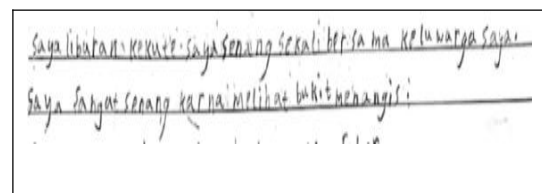 saya liburan kekute. saya senang sekali bersama keluwarga saya.
saya sangat senang karna melihat bukit menangis: